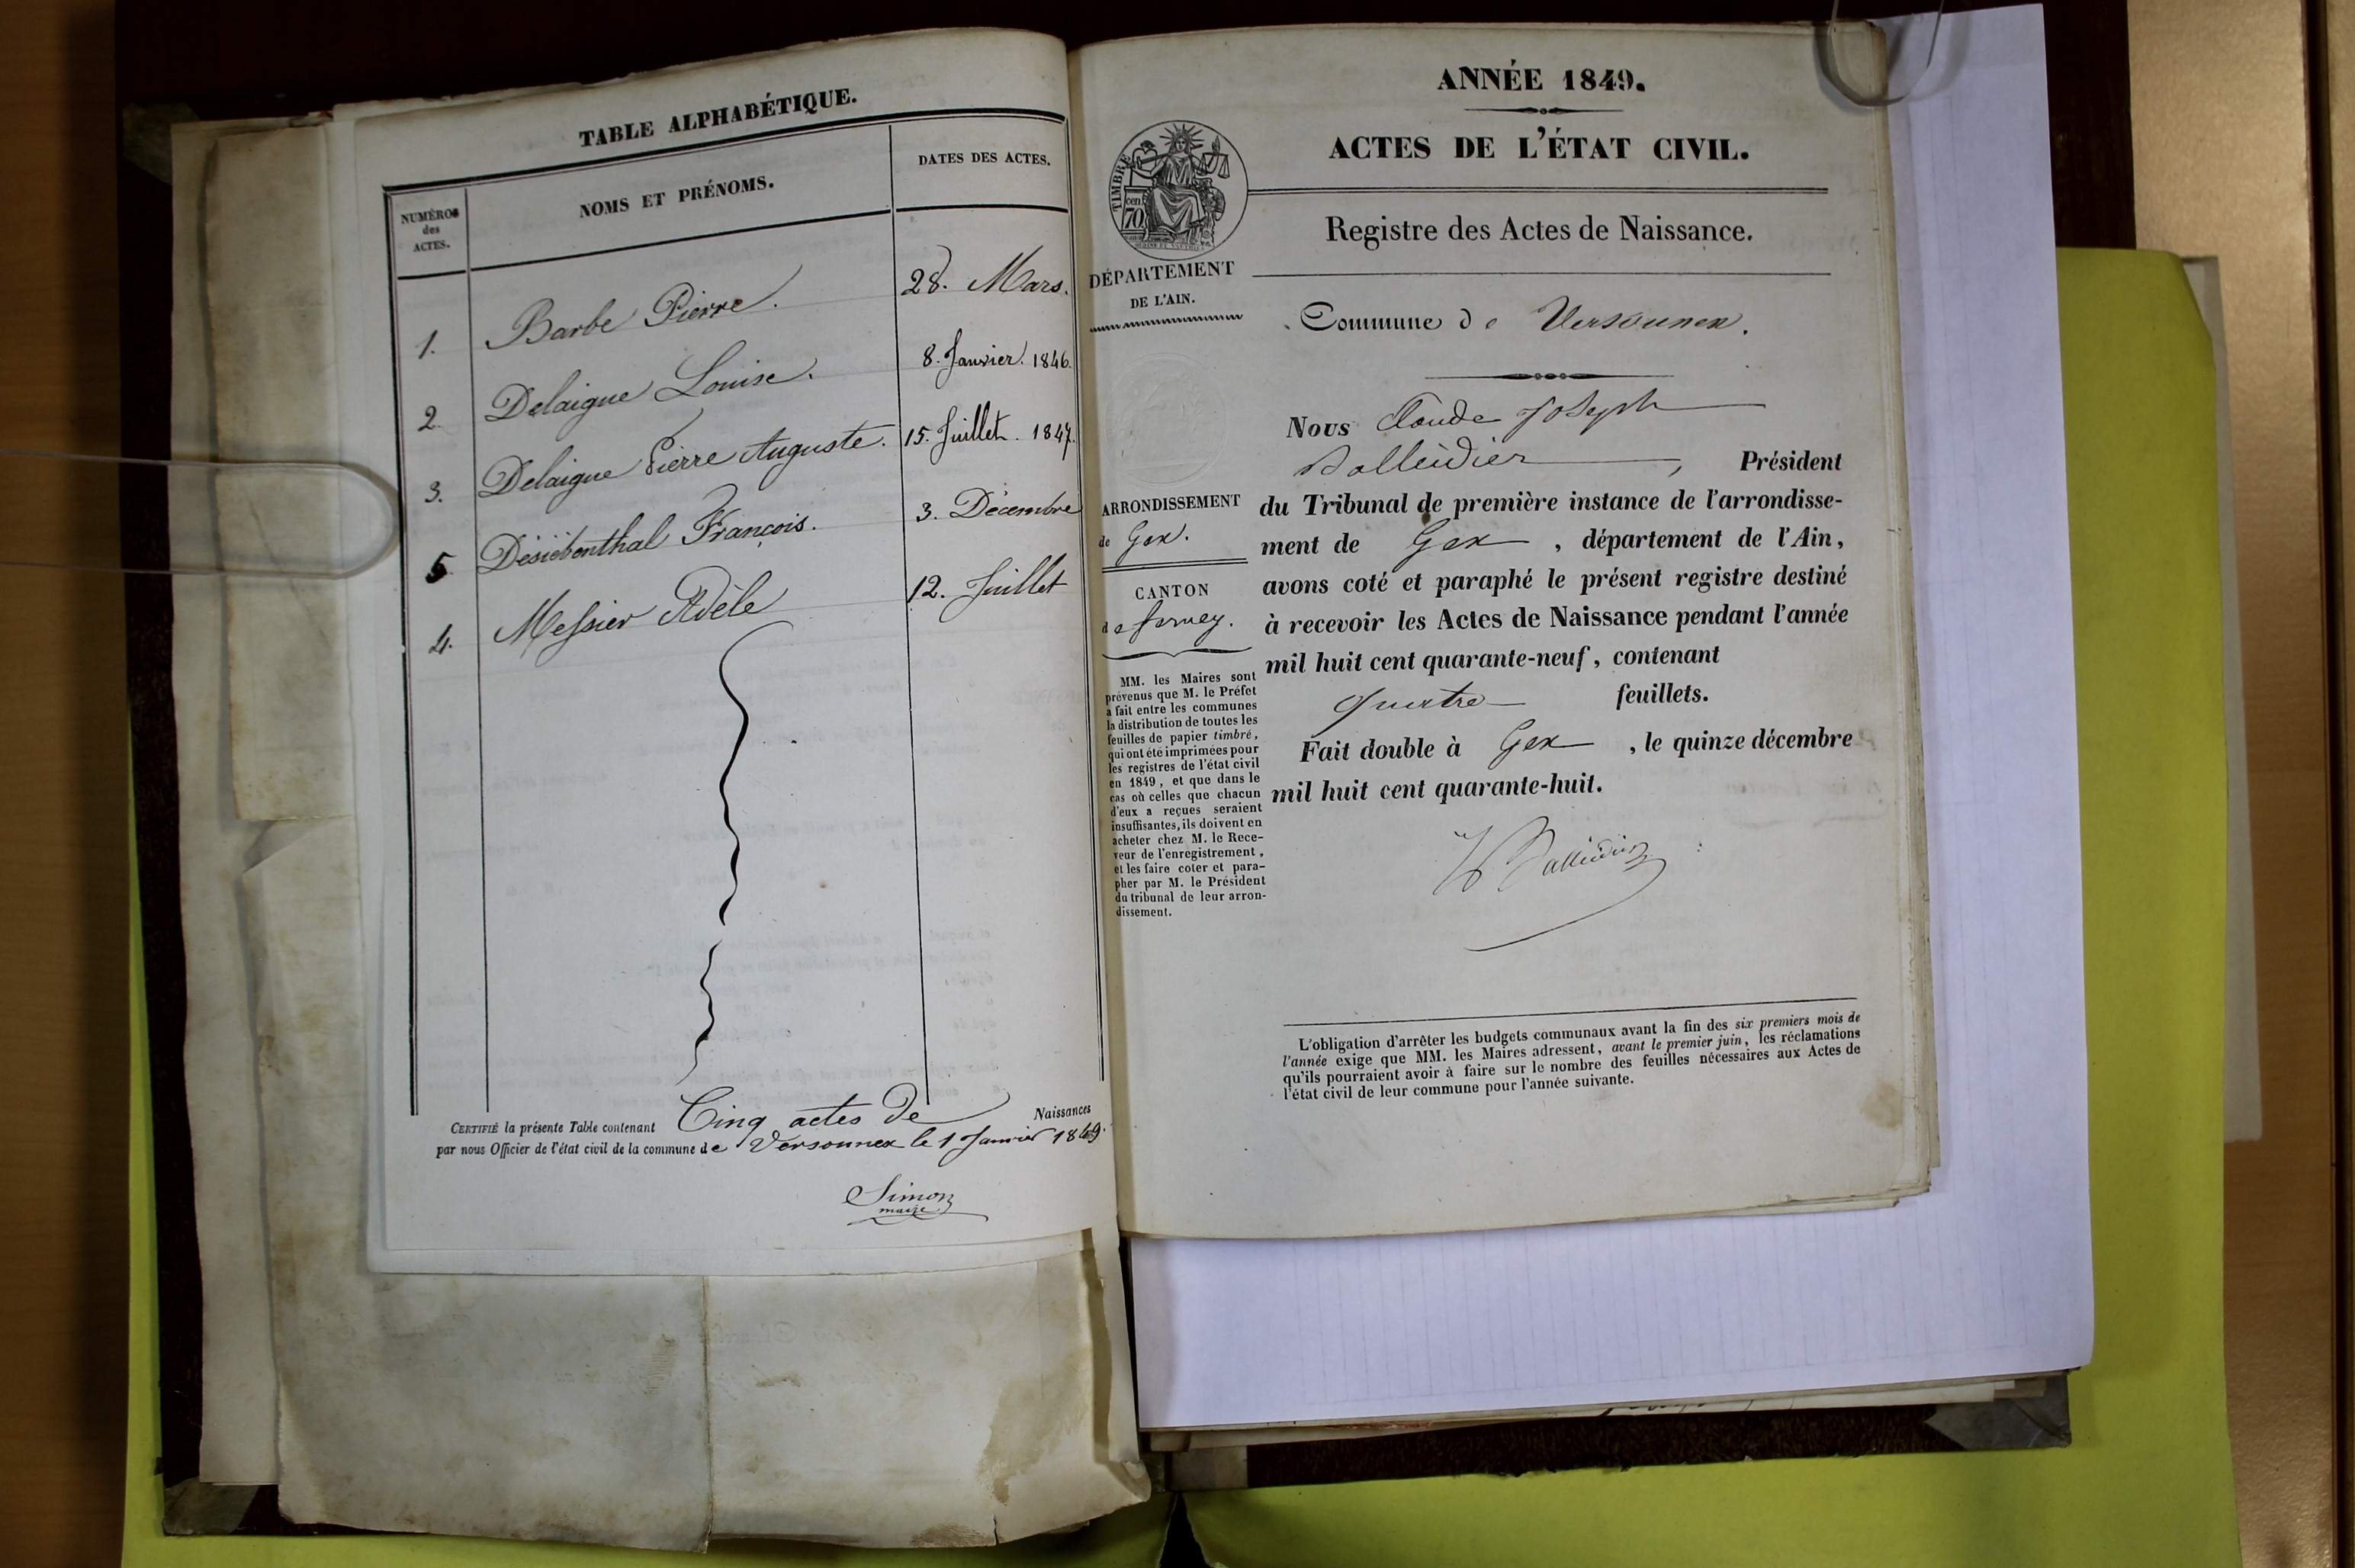 TABLE ALPHABÉTIQUE.
NUMÉROS
des
ACTES.
NOMS ET PRÉNOMS.
DATES DES ACTES.
1. Barbe Pierre. 28. Mars.
2. Delaigue Louise. 8. Janvier. 1846.
3. Delaigue Pierre Auguste. 15. Juillet. 1847.
5 Désiébenthal François. 3. Décembre
4. Messier Adèle 12. Juillet
CERTIFIÉ la présente Table contenant Cinq actes de Naissances
par nous Officier de l'état civil de la commune de Versonnex le 1 Janvier 1849.
Simon
maire
ANNÉE 1849.
ACTES DE L'ÉTAT CIVIL.
Registre des Actes de Naissance.
TIMBRE
70 cen
DÉPARTEMENT
DE L'AIN.
Commune de Versonnex.
ARRONDISSEMENT
de Gex.
CANTON
de ferney.
MM. les Maires sont
prévenus que M. le Préfet
a fait entre les communes
la distribution de toutes les
feuilles de papier timbré,
qui ont été imprimées pour
les registres de l'état civil
en 1849, et que dans le
cas où celles que chacun
d'eux a reçues seraient
insuffisantes, ils doivent en
acheter chez M. le Rece-
veur de l'enregistrement,
et les faire coter et para-
pher par M. le Président
du tribunal de leur arron-
dissement.
Nous Claude Joseph
Balleidier, Président
du Tribunal de première instance de l'arrondisse-
ment de Gex, département de l'Ain,
avons coté et paraphé le présent registre destiné
à recevoir les Actes de Naissance pendant l'année
mil huit cent quarante-neuf, contenant
quatre feuillets.
Fait double à Gex, le quinze décembre
mil huit cent quarante-huit.
Balleidier
L'obligation d'arrêter les budgets communaux avant la fin des six premiers mois de
l'année exige que MM. les Maires adressent, avant le premier juin, les réclamations
qu'ils pourraient avoir à faire sur le nombre des feuilles nécessaires aux Actes de
l'état civil de leur commune pour l'année suivante.